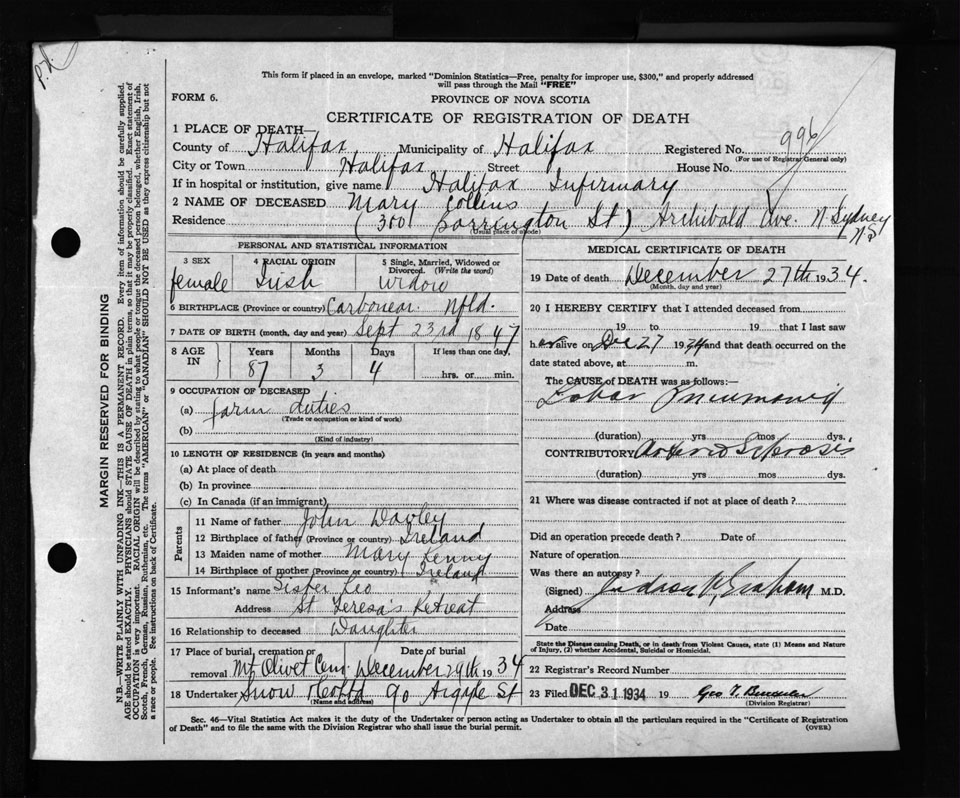 P.H.
This form if placed in an envelope, marked "Dominion Statistics—Free, penalty for improper use, $300," and properly addressed
will pass through the Mail "FREE"
FORM 6.
PROVINCE OF NOVA SCOTIA
CERTIFICATE OF REGISTRATION OF DEATH
996
1 PLACE OF DEATH—
County of Halifax Municipality of Halifax Registered No.
(For use of Registrar General only)
City or Town Halifax Street House No.
If in hospital or institution, give name Halifax Infirmary
2 NAME OF DECEASED Mary Collins
Residence (360 Barrington St) Archibald Ave. N Sydney
NS
(Usual place of abode)
PERSONAL AND STATISTICAL INFORMATION
3 SEX 4 RACIAL ORIGIN 5 Single, Married, Widowed or
Divorced. (Write the word)
female Irish Widow
6 BIRTHPLACE (Province or country) Carbonear. Nfld.
7 DATE OF BIRTH (month, day and year) Sept 23rd 1847
8 AGE IN Years Months Days If less than one day,
87 3 4 hrs. or min.
9 OCCUPATION OF DECEASED
(a) farm duties
(Trade or occupation or kind of work)
(b)
(Kind of industry)
10 LENGTH OF RESIDENCE (in years and months)
(a) At place of death
(b) In province
(c) In Canada (if an immigrant)
Parents
11 Name of father John
12 Birthplace of father (Province or country) Ireland
13 Maiden name of mother Mary Kenny
14 Birthplace of mother (Province or country) Ireland
15 Informant's name Sister Leo
Address St Teresa's Retreat
16 Relationship to deceased Daughter
17 Place of burial, cremation or removal Date of burial
Mt Olivet Cem. December 29th 1934
18 Undertaker Snow & Co Ltd 90 Argyle St
(Name and address)
MEDICAL CERTIFICATE OF DEATH
19 Date of death December 27th 1934.
(Month, day and year)
20 I HEREBY CERTIFY that I attended deceased from
19 to 19 that I last saw
her alive on Dec 27 1934 and that death occurred on the
date stated above, at m.
The CAUSE of DEATH was as follows:—
Lobar Pneumonia
(duration) yrs mos dys.
CONTRIBUTORY Arterio Sclerosis
(duration) yrs mos dys.
21 Where was disease contracted if not at place of death?
Did an operation precede death? Date of
Nature of operation
Was there an autopsy?
(Signed) Judson V. Graham M.D.
Address
Date
State the Disease causing Death, or in death from Violent Causes, state (1) Means and Nature
of Injury, (2) whether Accidental, Suicidal or Homicidal.
22 Registrar's Record Number
23 Filed DEC 31 1934 19 Geo
(Division Registrar)
Sec. 46—Vital Statistics Act makes it the duty of the Undertaker or person acting as Undertaker to obtain all the particulars required in the "Certificate of Registration
of Death" and to file the same with the Division Registrar who shall issue the burial permit.
(OVER)
MARGIN RESERVED FOR BINDING
N.B.—WRITE PLAINLY WITH UNFADING INK—THIS IS A PERMANENT RECORD. Every item of information should be carefully supplied.
AGE should be stated EXACTLY. PHYSICIANS should STATE CAUSE OF DEATH in plain terms, so that it may be properly classified. Exact statement of
OCCUPATION is very important. RACIAL ORIGIN will be described by stating to what people or tongue the deceased person belonged, whether English, Irish,
Scotch, French, German, Russian, Ruthenian, etc. The terms "AMERICAN" or "CANADIAN" SHOULD NOT BE USED as they express citizenship but not
a race or people. See instructions on back of Certificate.